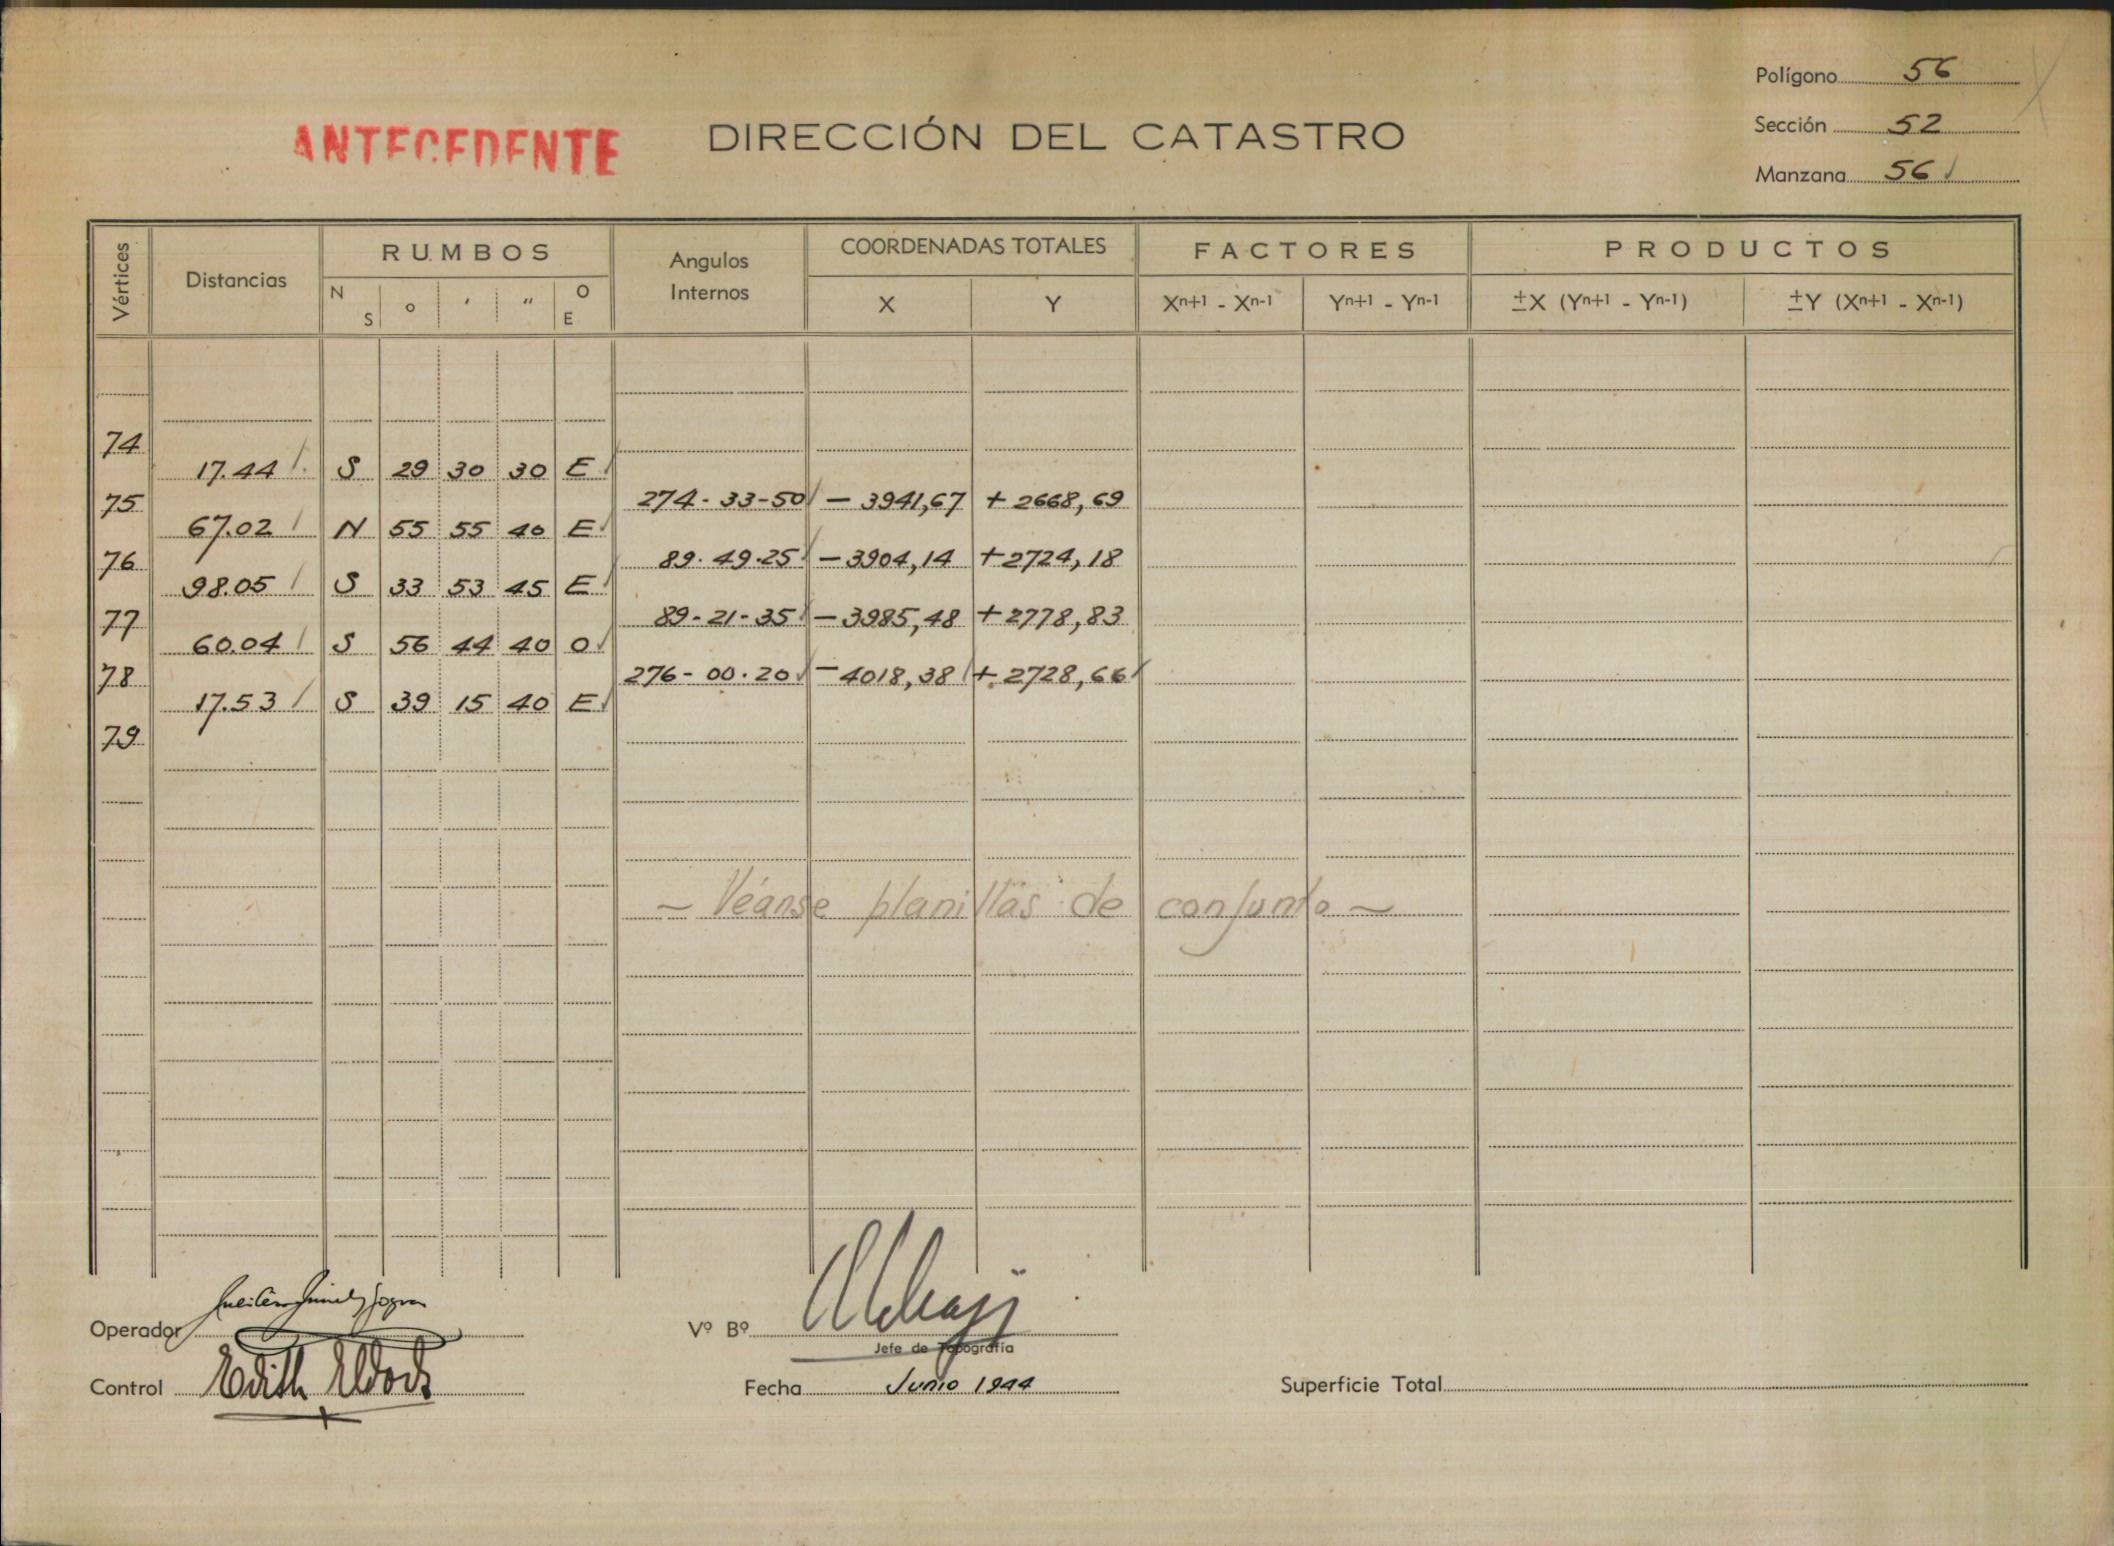 Polígono 56
ANTECEDENTE DIRECCIÓN DEL CATASTRO
Sección 52
Manzana 56
Vértices Distancias RUMBOS Angulos Internos COORDENADAS TOTALES FACTORES PRODUCTOS
N S o ′ ″ O E X Y Xn+1 - Xn-1 Yn+1 - Yn-1 ±X (Yn+1 - Yn-1) ±Y (Xn+1 - Xn-1)
74
17.44 S 29 30 30 E
75 274-33-50 -3941,67 +2668,69
67.02 N 55 55 40 E
76 89.49.25 -3904,14 +2724,18
98.05 S 33 53 45 E
77 89-21-35 -3985,48 +2778,83
60.04 S 56 44 40 O
78 276-00.20 -4018,38 +2728,66
17.53 S 39 15 40 E
79
- Véanse planillas de conjunto -
Operador
Vº Bº
Jefe de Topografía
Control Edith
Fecha Junio 1944
Superficie Total